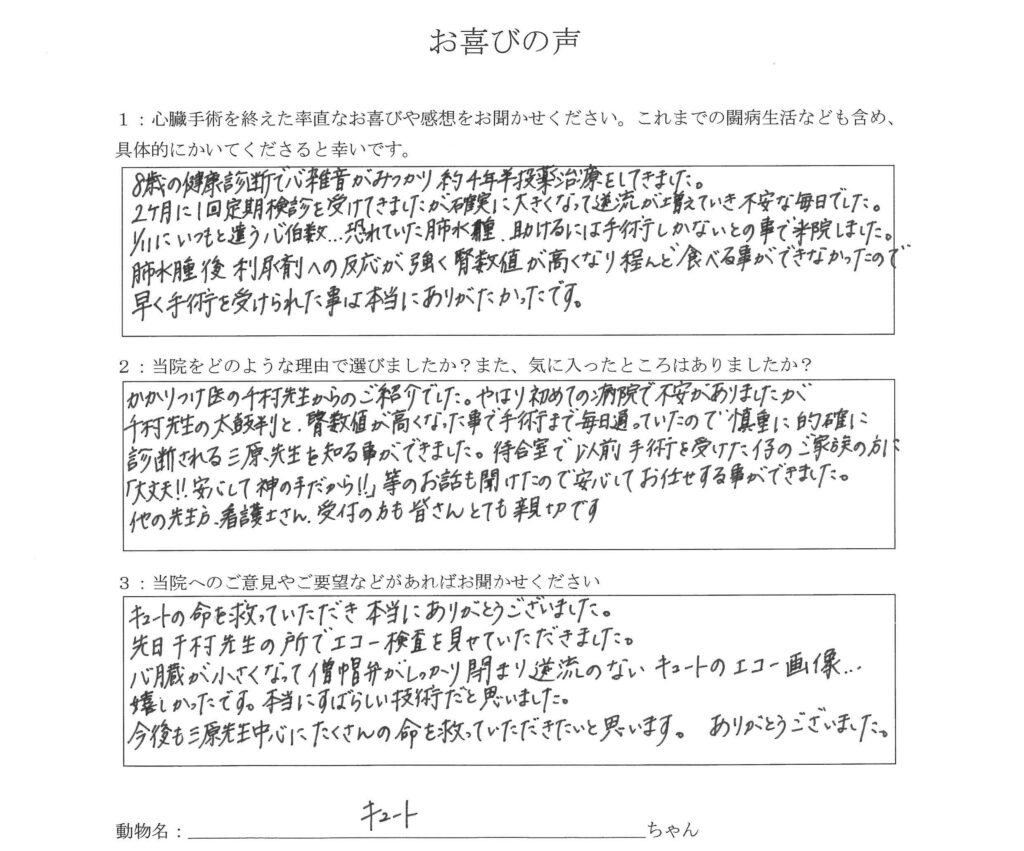 お喜びの声
1：心臓手術を終えた率直なお喜びや感想をお聞かせください。これまでの闘病生活なども含め、
具体的にかいてくださると幸いです。
8歳の健康診断で心雑音がみつかり 約4年半投薬治療をしてきました。
2ヶ月に1回定期検診を受けてきましたが確実に大きくなって逆流が増えていき不安な毎日でした。
1/11にいつもと違う心伯数…恐れていた肺水腫．助けるには手術しかないとの事で来院しました。
肺水腫後 利尿剤への反応が強く腎数値が高くなり程んど食べる事ができなかったので
早く手術を受けられた事は本当にありがたかったです。
2：当院をどのような理由で選びましたか？また、気に入ったところはありましたか？
かかりつけ医の千村先生からのご紹介でした。やはり初めての病院で不安がありましたが
千村先生の太鼓判と、腎数値が高くなった事で手術まで毎日通っていたので 慎重に的確に
診断される三原先生を知る事ができました。待合室で以前手術を受けた仔のご家族の方に
「大丈夫!!安心して神の手だから!!」等のお話も聞けたので安心してお任せする事ができました。
他の先生方、看護士さん、受付の方も皆さんとても親切です
3：当院へのご意見やご要望などがあればお聞かせください
キュートの命を救っていただき 本当にありがとうございました。
先日千村先生の所でエコー検査を見せていただきました。
心臓が小さくなって僧帽弁がしっかり閉まり逆流のない キュートのエコー画像…
嬉しかったです。本当にすばらしい技術だと思いました。
今後も三原先生中心にたくさんの命を救っていただきたいと思います。 ありがとうございました。
動物名：キュートちゃん